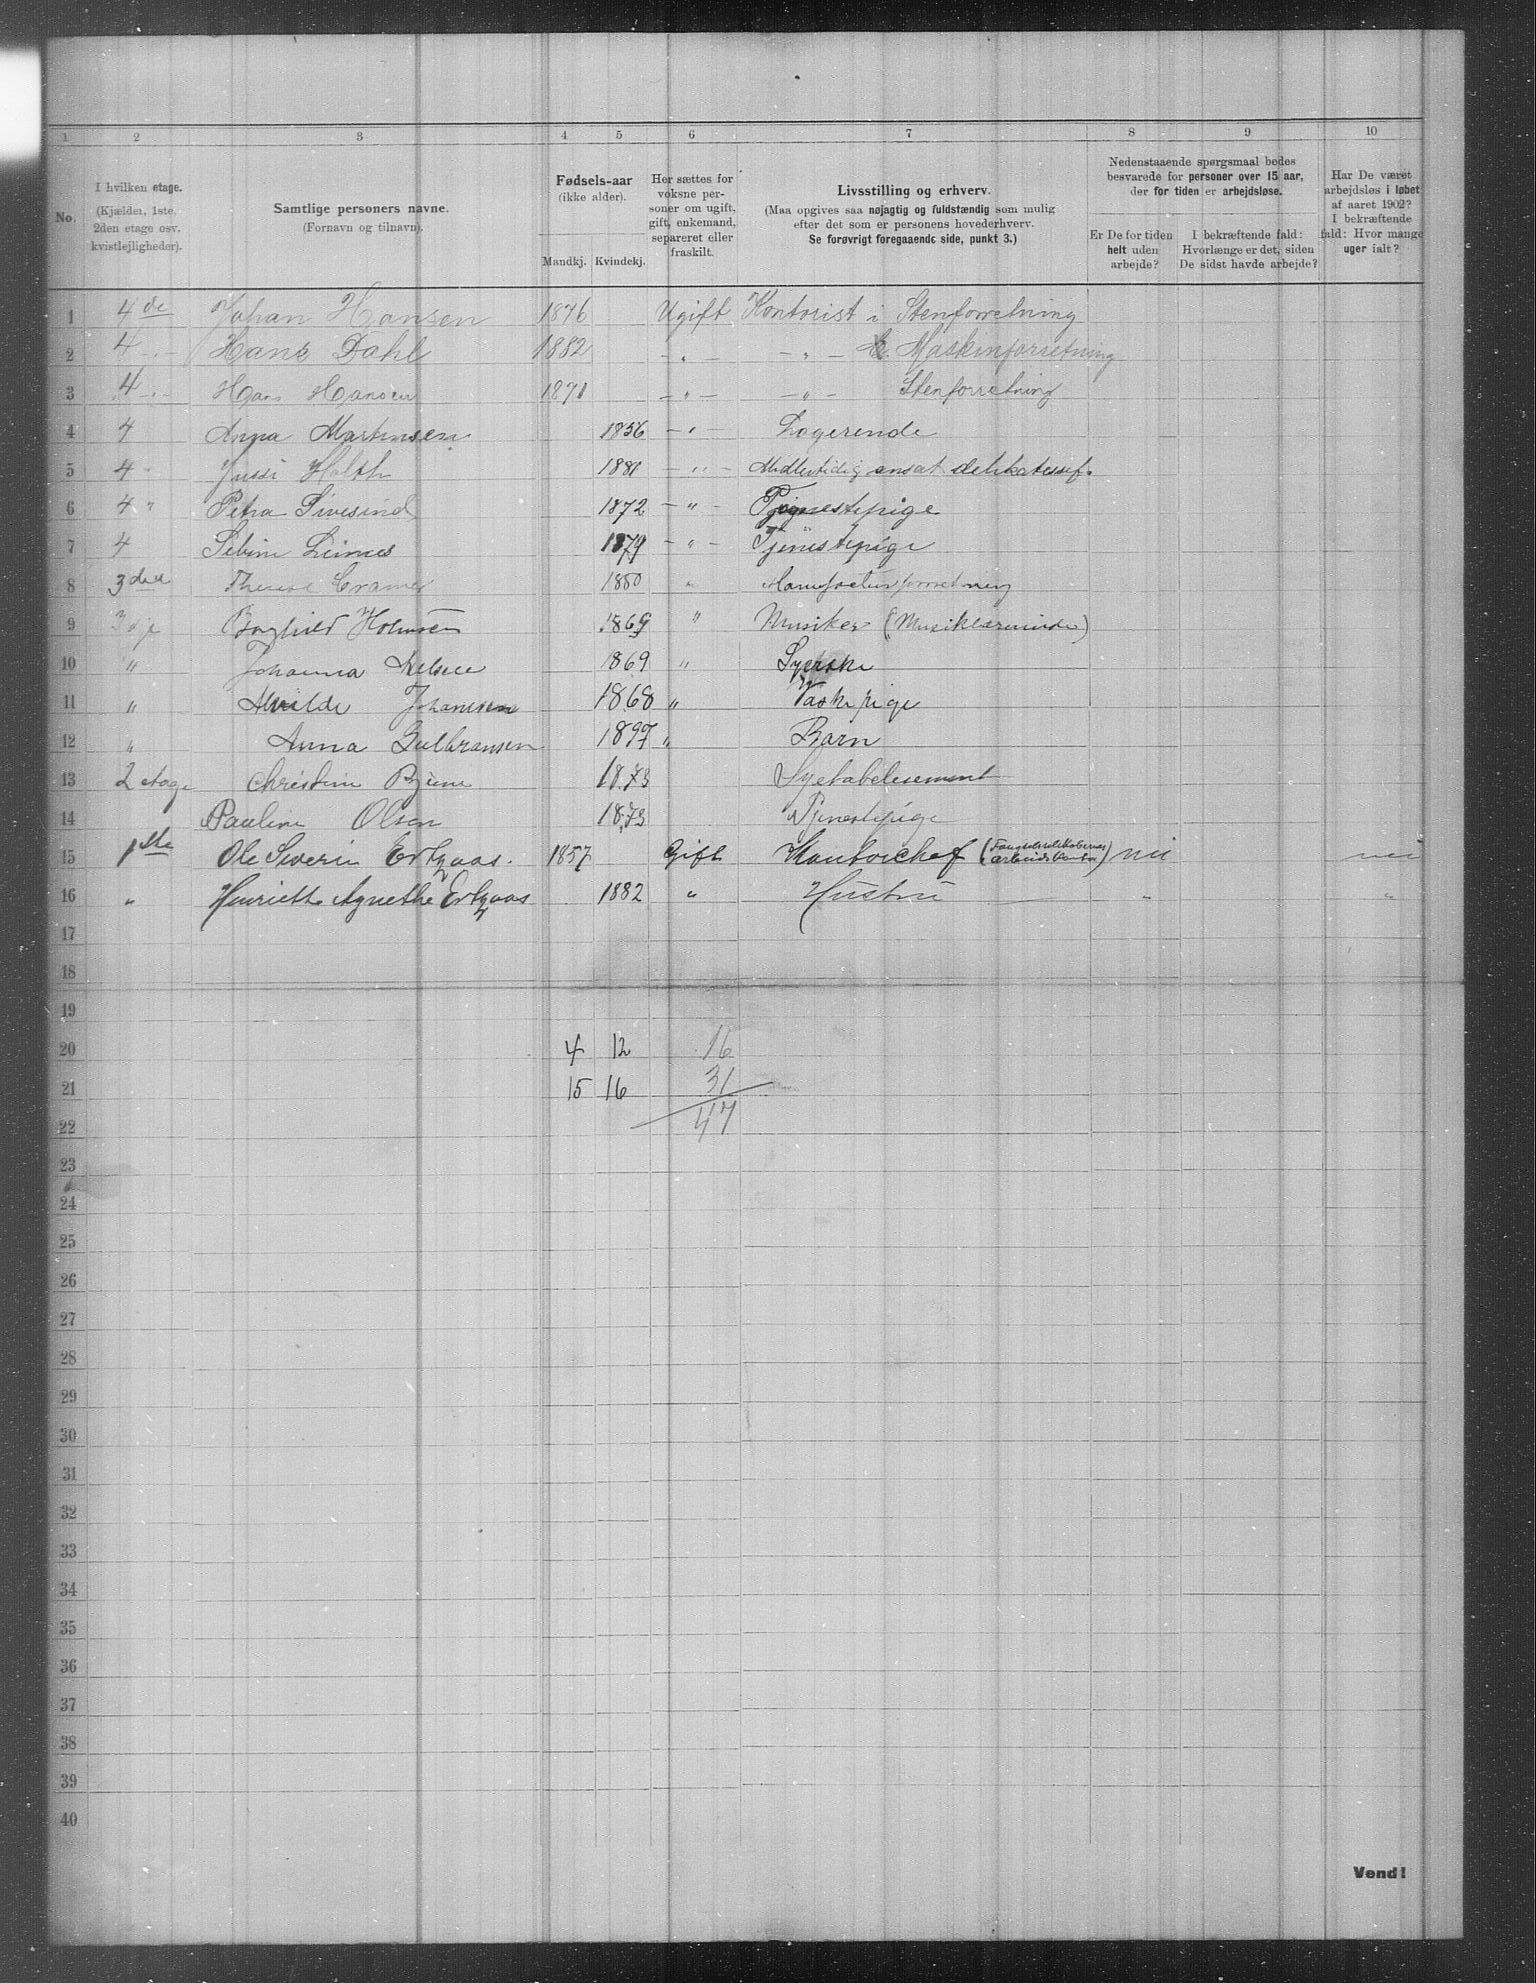 1 2 3 4 5 6 7 8 9 10
No.
I hvilken etage.
(Kjælder, 1ste,
2den etage osv.
kvistlejligheder).
Samtlige personers navne.
(Fornavn og tilnavn).
Fødsels-aar
(ikke alder).
Mandkj. Kvindekj.
Her sættes for
voksne per-
soner om ugift,
gift, enkemand,
separeret eller
fraskilt.
Livsstilling og erhverv.
(Maa opgives saa nøjagtig og fuldstændig som mulig
efter det som er personens hovederhverv.
Se forøvrigt foregaaende side, punkt 3.)
Nedenstaaende spørgsmaal bedes
besvarede for personer over 15 aar,
der for tiden er arbejdsløse.
Er De for tiden
helt uden
arbejde?
I bekræftende fald:
Hvorlænge er det, siden
De sidst havde arbejde?
Har De været
arbejdsløs i løbet
af aaret 1902?
I bekræftende
fald: Hvor mange
uger ialt?
1 4de Johan Hansen 1876 Ugift Kontorist i Stenforretning
2 4 -"- Hans Dahl 1882 -"- -"- Maskinforretning
3 4 -"- Hans Hansen 1871 -"- -"- Stenforretning
4 4 Anna Martinsen 1856 -"- Logerende
5 4 " Jussi Holth 1881 -"- Midlertidig ansat delikatessf.
6 4 " Petra Sivesind 1872 -"- Tjenestepige
7 4 1879 -"- Tjenestepige
8 3die Therese Cramer 1850 " Manufacturforretning
9 3dje Borghild Holmsen 1869 " Musiker (Musiklærerinde)
10 " Johanna Nelsen 1869 " Syerske
11 " Alvilde Johansen 1868 " Vaskepige
12 " Anna Gulbransen 1897 " Barn
13 2 etage Christine 1873 Syetablissement
14 Pauline Olsen 1873 Tjenestepige
15 1ste Ole Severin Ertzaas. 1857 Gift Kontorchef ( arbeidskontor) nei nei
16 " Henriette Agnethe Ertzaas 1882 " Hustru " "
17
18
19
20 4 12 16
21 15 16 31
22 47
23
24
25
26
27
28
29
30
31
32
33
34
35
36
37
38
39
40
Vend!